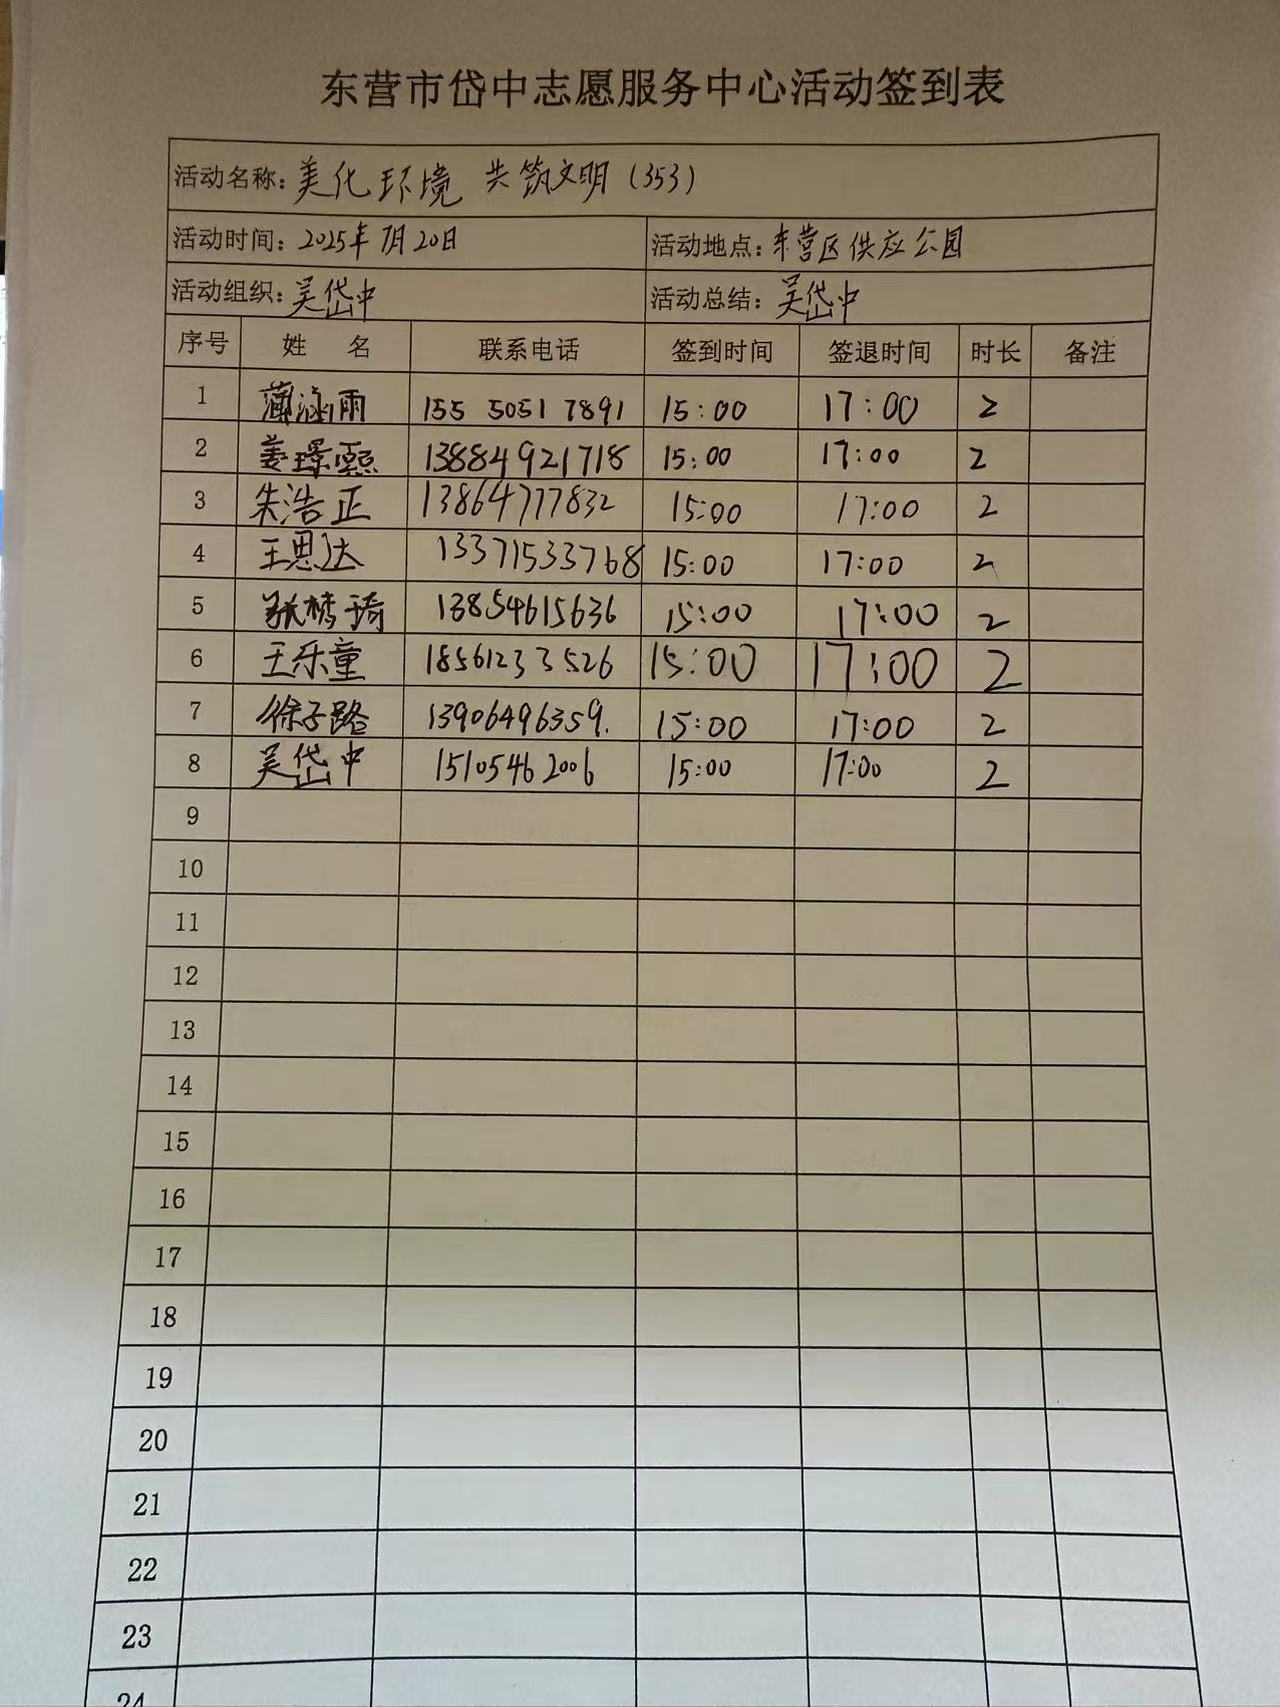 东营市岱中志愿服务中心活动签到表
活动名称：美化环境 共筑文明（353）
活动时间：2025年7月20日 活动地点：东营区供应公园
活动组织：吴岱中 活动总结：吴岱中
序号 姓 名 联系电话 签到时间 签退时间 时长 备注
1 薄涵雨 155 5051 7891 15:00 17:00 2
2 姜璟熙 13884921718 15:00 17:00 2
3 朱浩正 13864777832 15:00 17:00 2
4 王思达 13371533768 15:00 17:00 2
5 张梦琦 13854615636 15:00 17:00 2
6 王乐童 18561233526 15:00 17:00 2
7 徐子路 13906496359. 15:00 17:00 2
8 吴岱中 15105462006 15:00 17:00 2
9
10
11
12
13
14
15
16
17
18
19
20
21
22
23
24